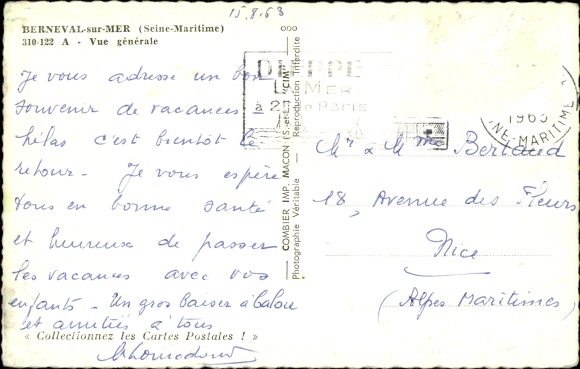 15.8.63
BERNEVAL-sur-MER (Seine-Maritime)
310-122 A - Vue générale
Je vous adresse un bon
souvenir de vacances -
hélas c'est bientôt le
retour - Je vous espère
tous en bonne santé
et heureux de passer
les vacances avec vos
enfants - Un gros baiser à
et amitiés à tous
« Collectionnez les Cartes Postales ! »
COMBIER IMP. MACON (S.-et-L.) "CIM"
Photographie Véritable - Reproduction Interdite
DIEPPE
MER
à 2 Paris
196
NE-MARITIME
Mr & Mme Bertaud
18, Avenue des Fleurs
Nice
(Alpes Maritimes)